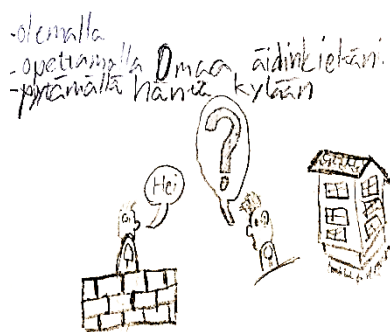 -olemalla
-opettamalla Omaa äidinkieläni.
-pytämällä häntä kylään
Hei
?